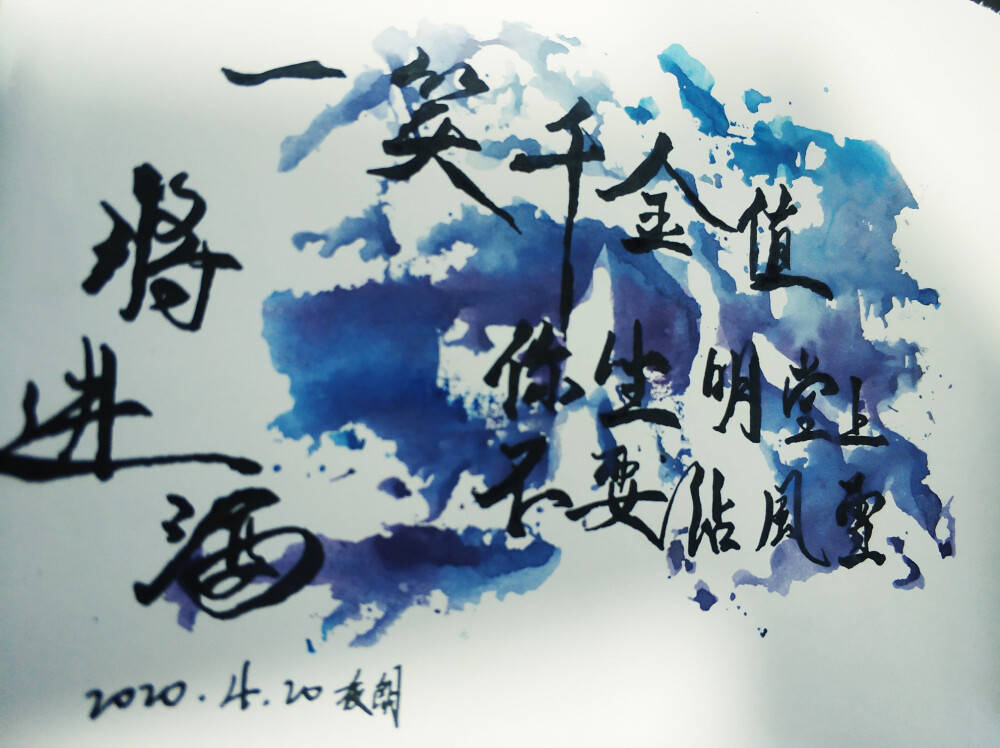 一笑千金值
你坐明堂上
不要沾風雪
将进酒
2020.4.20